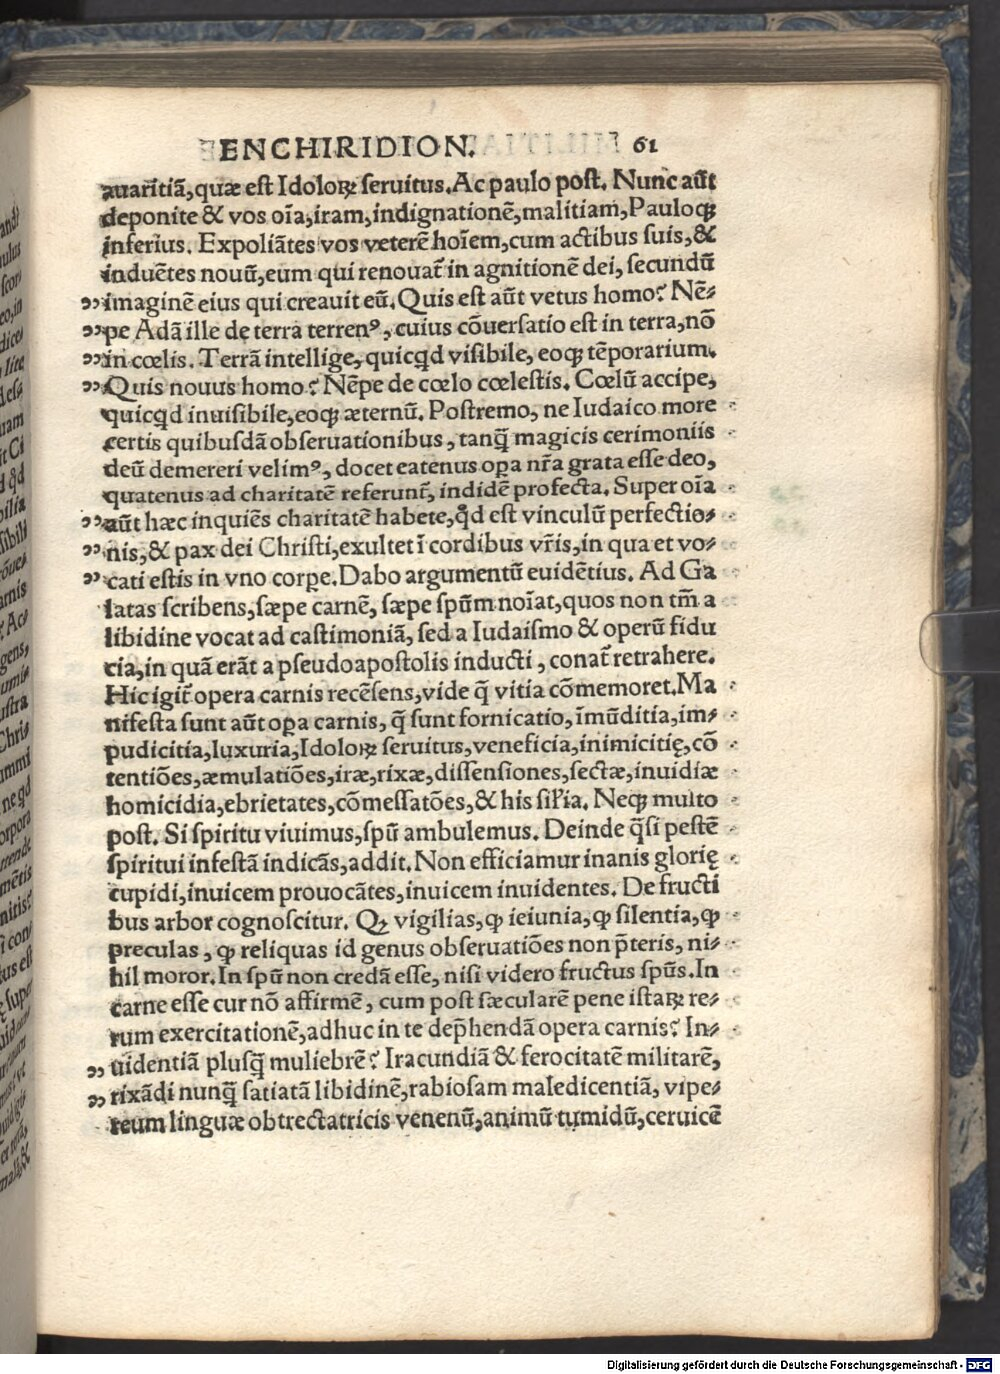 ENCHIRIDION. 61
auaritiã, quæ est Idoloꝝ seruitus. Ac paulo post. Nunc aũt
deponite & vos oĩa, iram, indignationẽ, malitiam, Pauloqꝫ
inferius. Expoliãtes vos veterẽ hoĩem, cum actibus suis, &
induẽtes nouũ, eum qui renouat̃ in agnitionẽ dei, secundũ
„imaginẽ eius qui creauit eũ. Quis est aũt vetus homo? Nẽ-
„pe Adã ille de terra terrenꝰ, cuius cõuersatio est in terra, nõ
„in cœlis. Terrã intellige, quicqd visibile, eoqꝫ tẽporarium.
„Quis nouus homo? Nẽpe de cœlo cœlestis. Cœlũ accipe,
quicqd inuisibile, eoqꝫ æternũ. Postremo, ne Iudaico more
certis quibusdã obseruationibus, tanq̃ magicis cerimoniis
deũ demereri velimꝰ, docet eatenus oꝑa nr̃a grata esse deo,
quatenus ad charitatẽ referunt̃, indidẽ profecta. Super oĩa
„aũt hæc inquiẽs charitatẽ habete, qd̓ est vinculũ perfectio-
„nis, & pax dei Christi, exultet ĩ cordibus vr̃is, in qua et vo-
„cati estis in vno corꝑe. Dabo argumentũ euidẽtius. Ad Ga
latas scribens, sæpe carnẽ, sæpe spũm noĩat, quos non tm̃ a
libidine vocat ad castimoniã, sed a Iudaismo & operũ fidu
cia, in quã erãt a pseudoapostolis inducti, conat̃ retrahere.
Hic igit̃ opera carnis recẽsens, vide q̃ vitia cõmemoret. Ma
nifesta sunt aũt oꝑa carnis, q̃ sunt fornicatio, ĩmũditia, im-
pudicitia, luxuria, Idoloꝝ seruitus, veneficia, inimicitię, cõ
tentiões, æmulatiões, iræ, rixæ, dissensiones, sectæ, inuidiæ
homicidia, ebrietates, cõmessatões, & his sil̃ia. Neqꝫ multo
post. Si spiritu viuimus, spũ ambulemus. Deinde q̃si pestẽ
spiritui infestã indicãs, addit. Non efficiamur inanis glorię
cupidi, inuicem prouocãtes, inuicem inuidentes. De fructi
bus arbor cognoscitur. Qꝫ vigilias, ꝙ ieiunia, ꝙ silentia, ꝙ
preculas, ꝙ reliquas id genus obseruatiões non p̃teris, ni-
hil moror. In spũ non credã esse, nisi videro fructus spũs. In
carne esse cur nõ affirmẽ, cum post sæcularẽ pene istaꝝ re-
rum exercitationẽ, adhuc in te dep̃hendã opera carnis? In-
„uidentiã plusq̃ muliebrẽ? Iracundiã & ferocitatẽ militarẽ,
„rixãdi nunq̃ satiatã libidinẽ, rabiosam maledicentiã, vipe-
reum linguæ obtrectatricis venenũ, animũ tumidũ, ceruicẽ
Digitalisierung gefördert durch die Deutsche Forschungsgemeinschaft - DFG